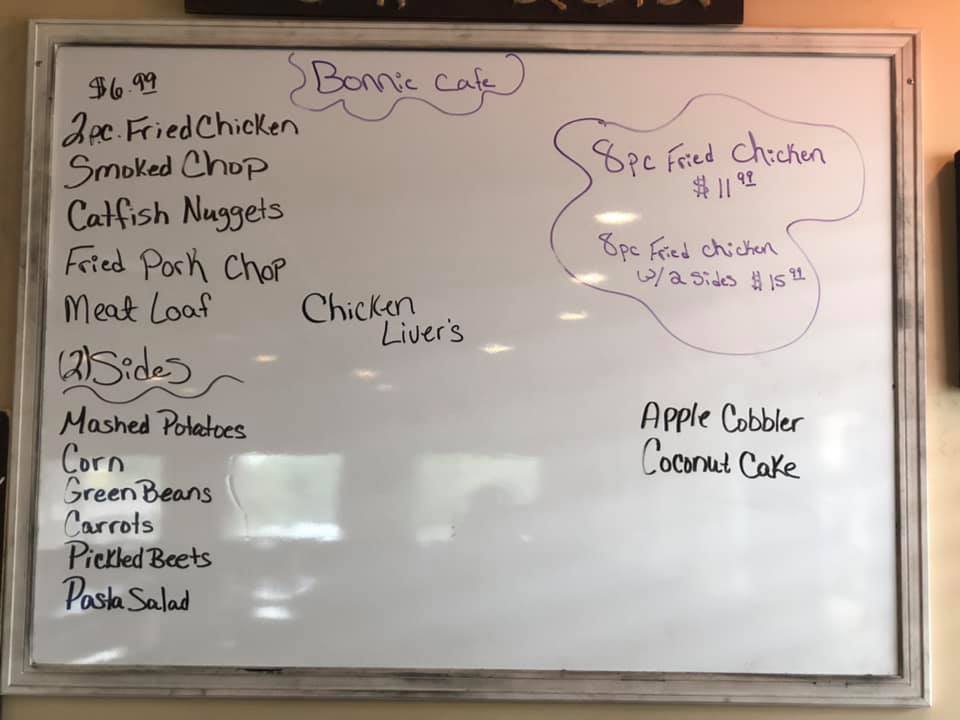 Bonnie Cafe
$6.99
2pc. Fried Chicken
Smoked Chop
Catfish Nuggets
Fried Pork Chop
Meat Loaf
Chicken
Liver's
(2) Sides
Mashed Potatoes
Corn
Green Beans
Carrots
Pickled Beets
Pasta Salad
8pc Fried Chicken
$11.99
8pc Fried chicken
w/2 Sides $15.99
Apple Cobbler
Coconut Cake